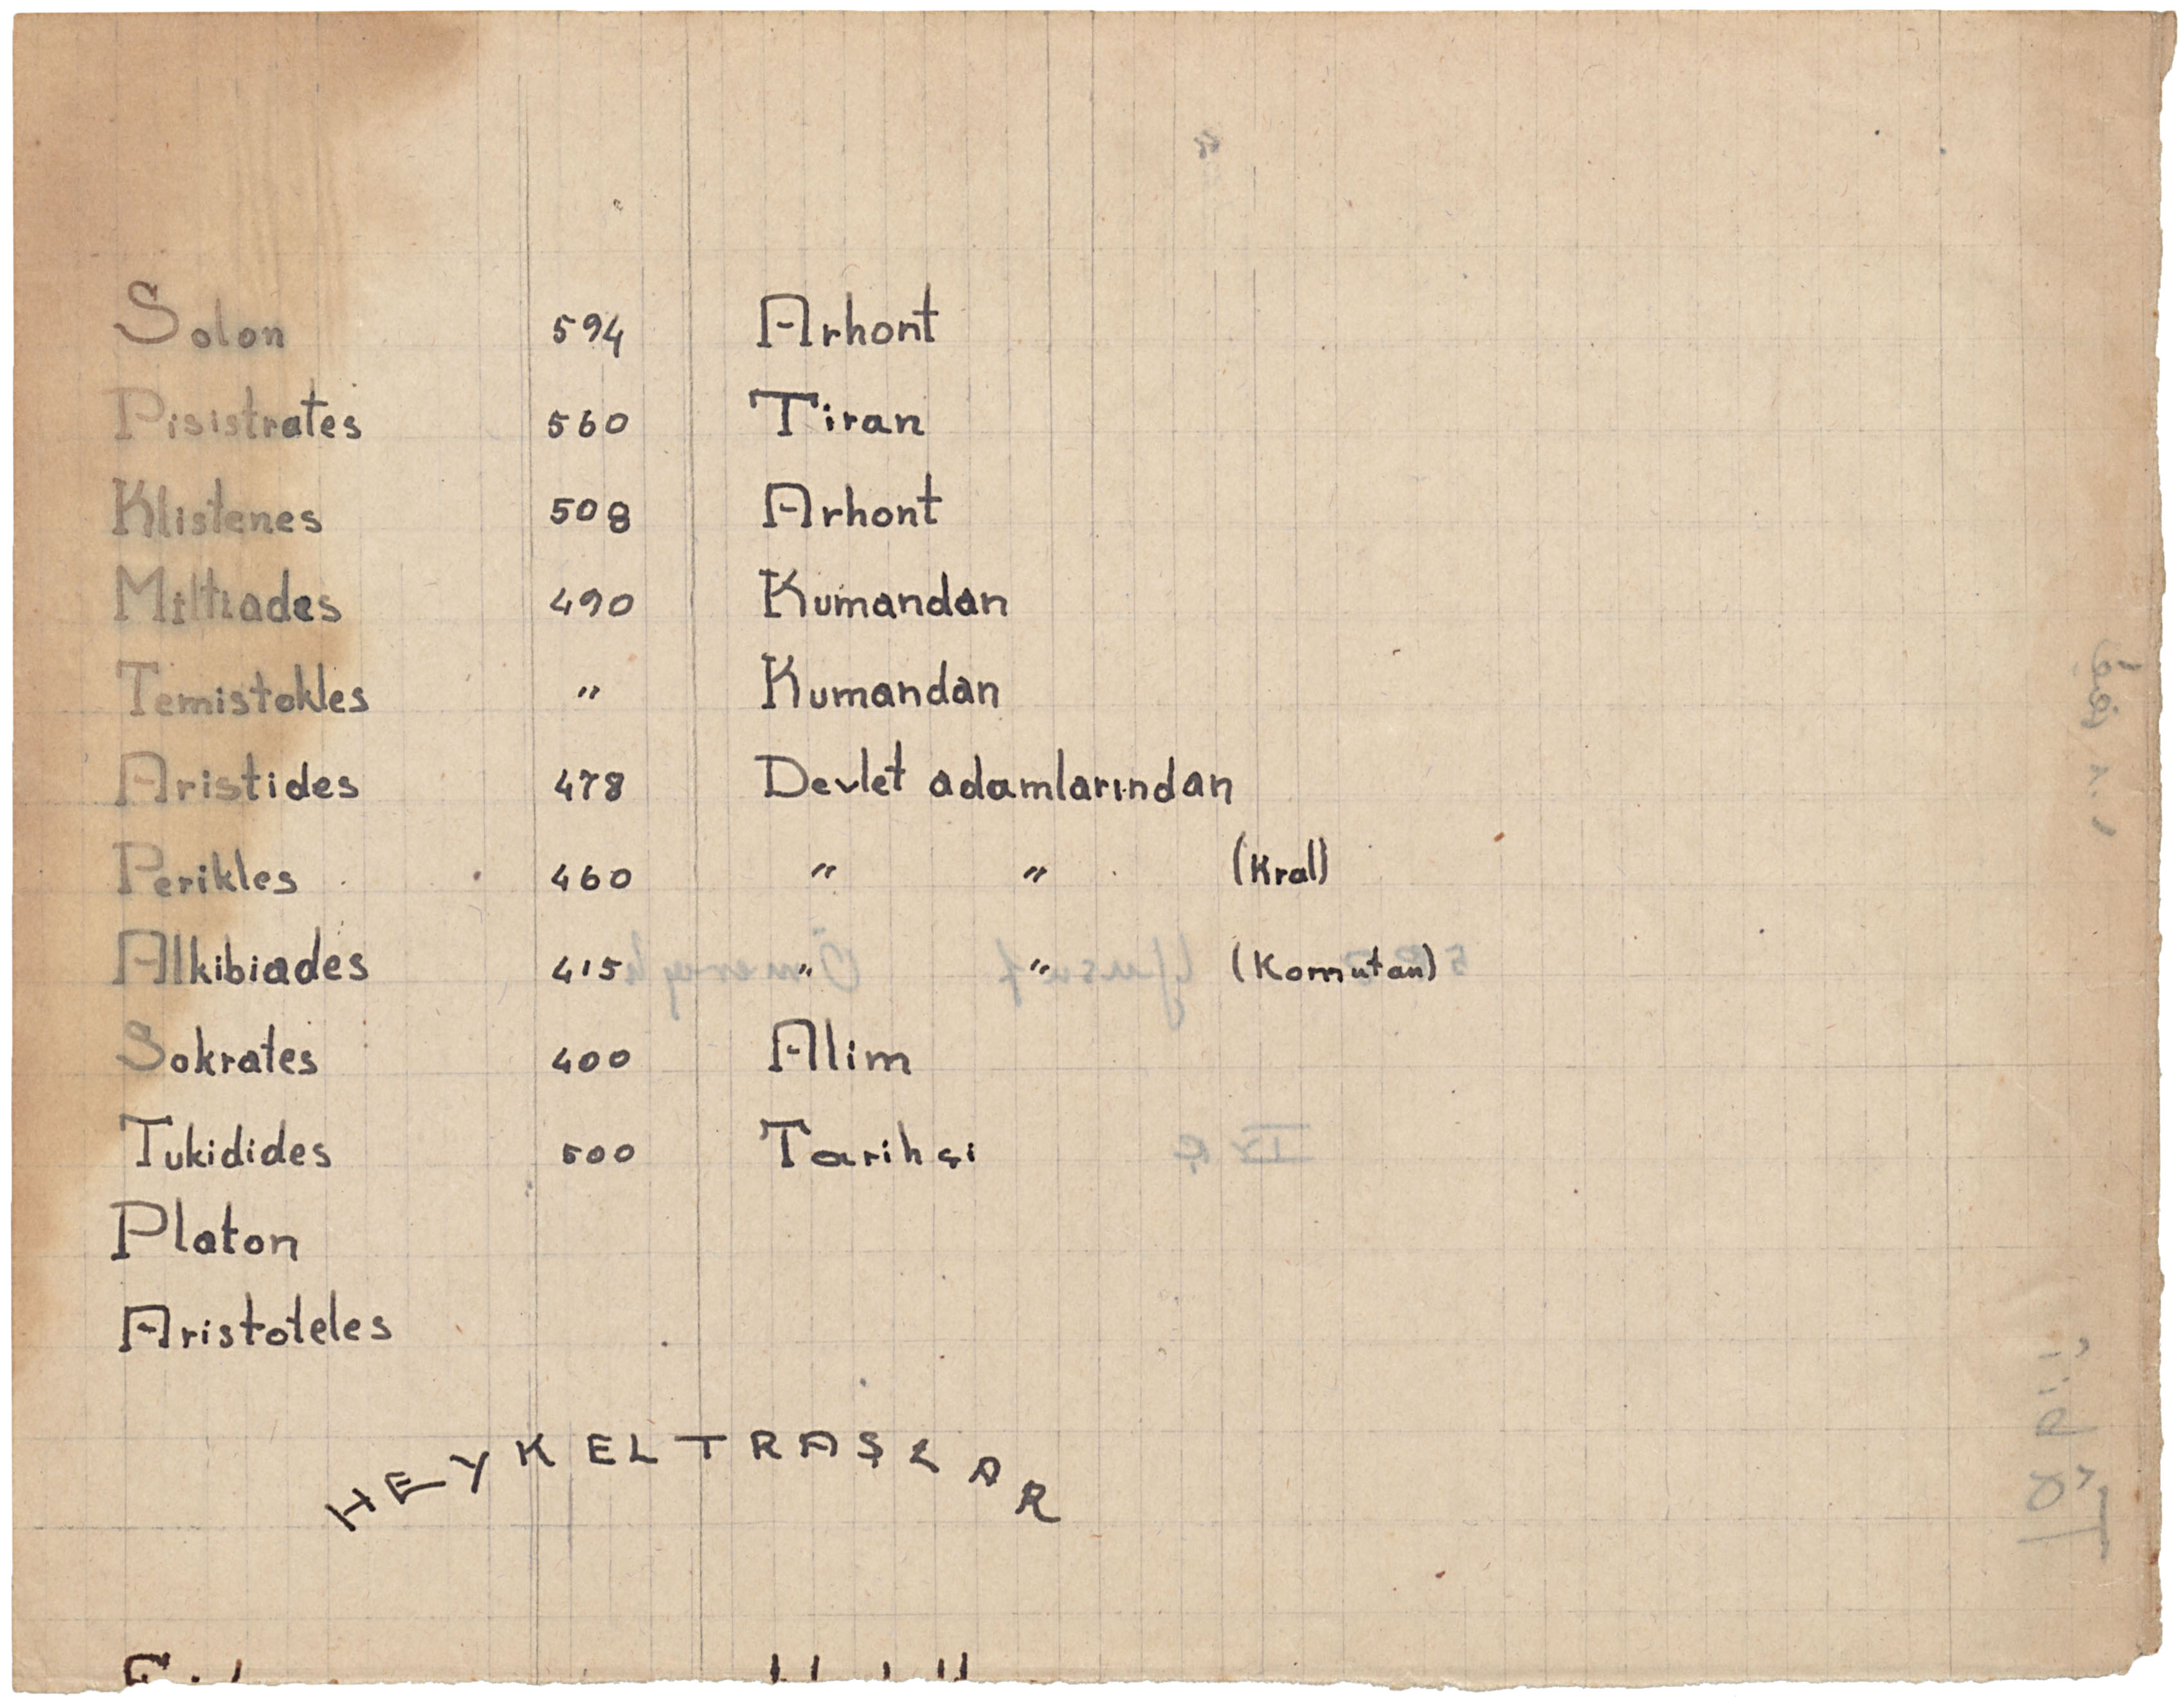 Solon 594 Arhont
Pisistrates 560 Tiran
Klistenes 508 Arhont
Miltiades 490 Kumandan
Temistokles " Kumandan
Aristides 478 Devlet adamlarından
Perikles 460 " " (Kral)
Alkibiades 415 " " (Komutan)
Sokrates 400 Alim
Tukidides 500 Tarihçi
Platon
Aristoteles
HEYKELTRAŞLAR